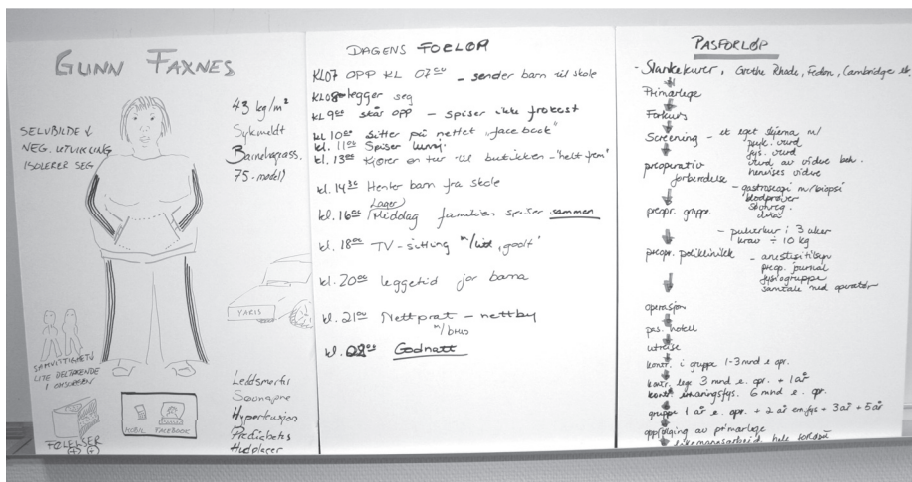 GUNN FAXNES
SELVBILDE ↓
NEG. UTVIKLING
ISOLERER SEG
43 kg/m²
Sykmeldt
Barnelvgrass.
75-modell
YARIS
SAMVITTIGHET ↓
LITE DELTAKENDE
I OMSORGEN
FØLELSER
(+) (+)
MOBIL FACEBOOK
Leddsmerter
Søvnapne
Hypertensjon
Prediabetes
Hudplager
DAGENS FORLØP
KL07 OPP KL 07⁰⁰ - sender barn til skole
KL08 legger seg
kl 9⁰⁰ står opp - spiser ikke frokost
kl 10⁰⁰ sitter på nettet "facebook"
kl. 11⁰⁰ Spiser lunsj
kl. 13⁰⁰ Kjører en tur til butikken - "helt frem"
kl. 14³⁰ Henter barn fra skole
Lager
kl. 16⁰⁰ /Middag familien spiser sammen
kl. 18⁰⁰ TV-sitting m/litt "godt"
kl. 20⁰⁰ leggetid for barna
kl. 21⁰⁰ Nettprat - nettby
kl. 02⁰⁰ Godnatt
PAS.FORLØP
- Slankekurer, Grethe Rhode, Fedon, Cambridge
Primærlege
Forkurs
Screening - et eget skjema m/
psyk. vurd
fys. vurd
vurd av videre beh.
henvises videre
preoperativ
forberedelse
- gastroscopi m/biopsi
blodprøver
preopr. gruppe
- pulverkur i 3 uker
krav ÷ 10 kg
preopr. poliklinikk - anestesitilsyn
preop. journal
fysiogruppe
samtale med operatør
operasjon
pas. hotell
utreise
kontr. i gruppe 1-3 mnd e. opr.
kontr. lege 3 mnd e. opr. + 1 år
kontr ernæringsfys. 6 mnd e. opr.
gruppe 1 år e. opr. + 2 år + 3 år + 5 år
oppfølging av primærlege